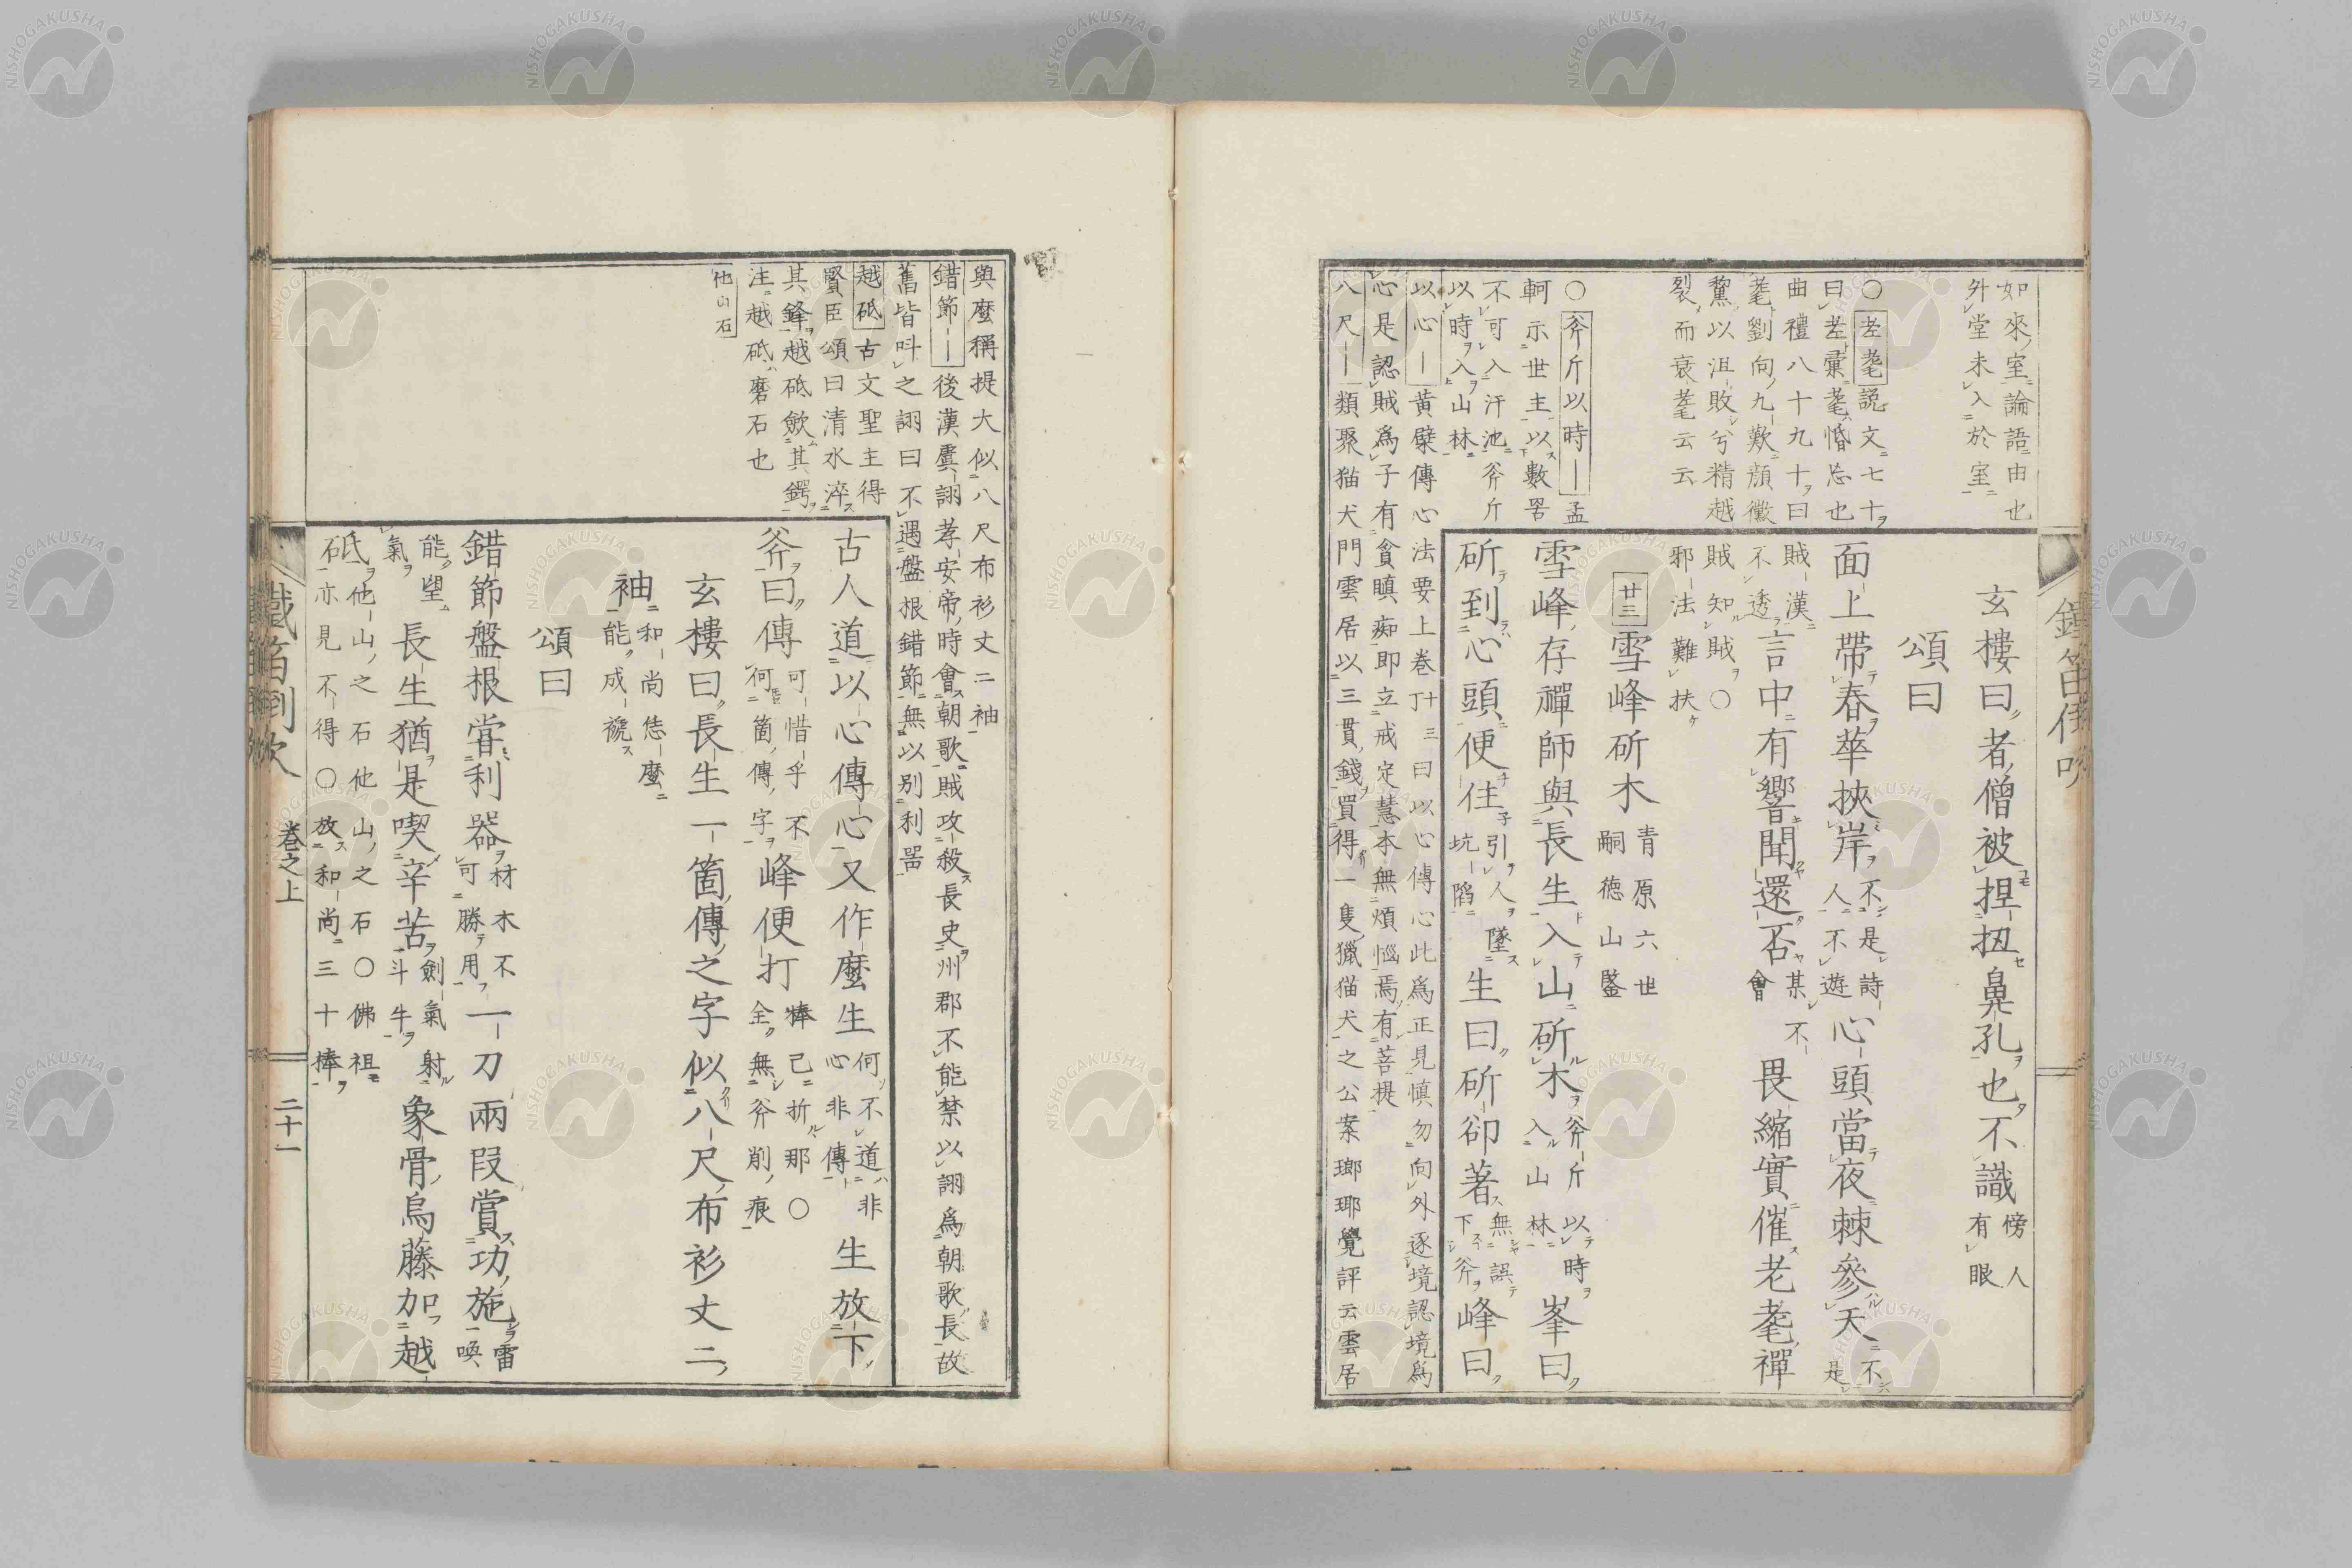 如來室論語由也
外堂未入於室
○耄耋說文七十
曰耄彙耄惛忘也
曲禮八十九十曰
耄劉向九歎顔黴
黧以沮敗兮精越
裂而衰耄云云
○斧斤以時｜孟
軻示世主以數罟
不可入汙池斧斤
以時入山林
以心｜黄檗傳心法要上卷丁十三曰以心傳心此爲正見愼勿向外逐境認境爲
心是認賊爲子有貪瞋痴即立戒定慧本無煩惱焉有菩提
八尺｜類聚猫犬門雲居以三貫錢買得一隻獵猫犬之公案瑯琊覺評云雲居
玄樓曰者僧被捏扭鼻孔也不識傍人有眼
頌曰
面上帶春華挾岸不是詩人不遊心頭當夜棘參天不是
賊漢不透言中有響聞還否某會不畏縮實催老耄禪
賊知賊○邪法難扶
廿三雪峰斫木青原六世嗣德山鑒
雪峰存禪師與長生入山斫木斧斤以時入山林峯曰
斫到心頭便住引人墜坑陷生曰斫卻著無誤下斧峰曰
鐵笛倒吹
與麼稱提大似八尺布衫丈二袖
錯節｜後漢虞詡孝安帝時會朝歌賊攻殺長史州郡不能禁以詡爲朝歌長故
舊皆呌之詡曰不遇盤根錯節無以別利噐
越砥古文聖主得
賢臣頌曰清水淬
其鋒越砥斂其鍔
注越砥磨石也
他山石
古人道以心傳心又作麼生何不道非心非傳生放下
斧曰傳可惜乎不何箇傳字峰便打棒已折那○全無斧削痕
玄樓曰長生一箇傳之字似八尺布衫丈二
袖和尚恁麼能成褫
頌曰
錯節盤根甞利器材木不可勝用一刀兩段賞功施雷喚
能望氣長生猶是喫辛苦劍氣射斗牛象骨烏藤加越
砥他山之石他山之石○佛祖石亦見不得○放和尚三十棒
鐵笛倒吹　卷之上　二十一